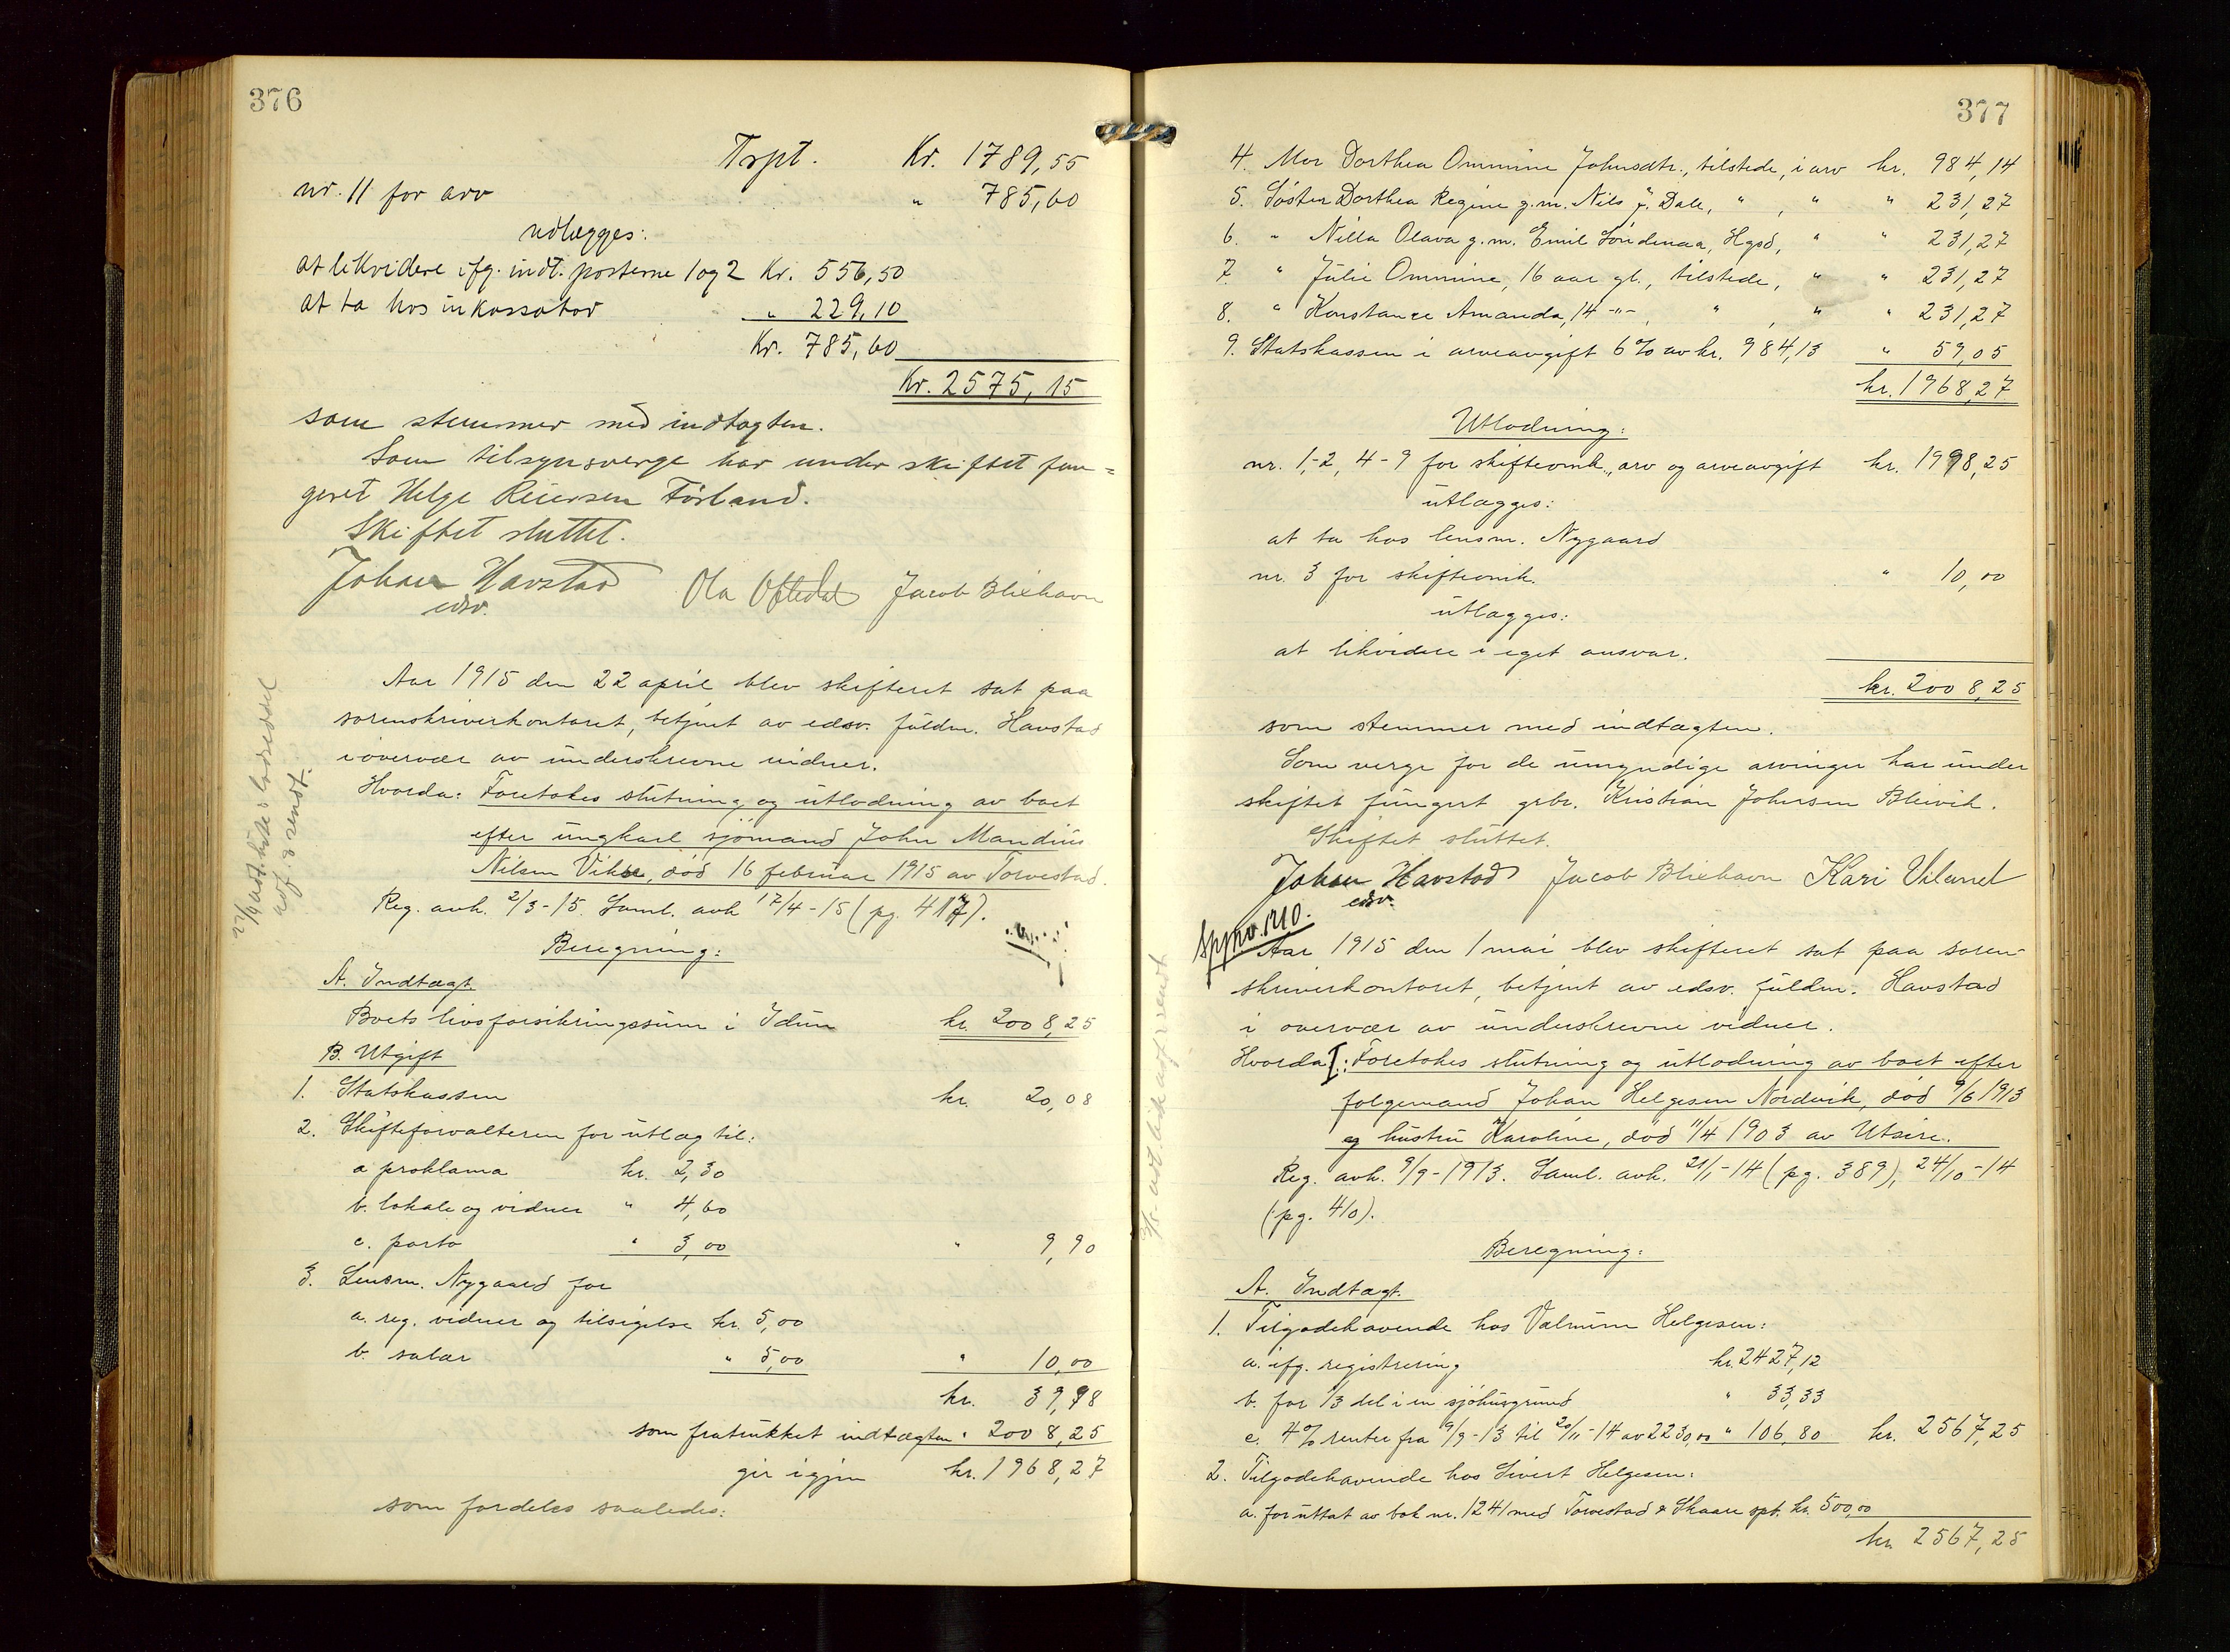 376
Trpt. Kr. 1789,55
nr. 11 for arv " 785,60
udlægges:
at likvidere ifg. indt. posterne 1 og 2 Kr. 556,50
at ta hos inkassator " 229,10
Kr. 785,60
Kr. 2575,15
som stemmer med indtægten.
Som tilsynsverge har under skiftet fun=
geret Helge Reiersen Førland.
Skiftet sluttet.
Johan Havstad Ola Oftedal Jacob Blixhavn
edsv.
Aar 1915 den 22 april blev skifteret sat paa
sorenskriverkontoret, betjent av edsv. fuldm. Havstad
i overvær av underskrevne vidner.
Hvorda: Foretokes slutning og utlodning av boet
efter ungkarl sjömand John Mandius
Nilsen Vikse, död 16 februar 1915 av Torvestad.
Reg. avh. 2/3-15. Saml. avh 17/4-15 (pg. 417).
Beregning:
A. Indtægt.
Boets livsforsikringssum i Idun kr. 2008,25
B. Utgift
1. Statskassen kr. 20,08
2. Skifteforvalteren for utlæg til:
a proklama kr. 2,30
b. lokale og vidner " 4,60
c. porto " 3,00 " 9,90
3. Lensm. Nygaard for
a. reg. vidner og tilsigelse kr. 5,00
b. salær " 5,00 " 10,00
kr. 39,98
som fratrukket indtægten " 2008,25
gir igjen kr. 1968,27
som fordeles saaledes:
377
4. Mor Dorthea Ommine Johnsdtr., tilstede, i arv kr. 984,14
5. Söster Dorthea Regine g.m. Nils J. Dale, " , " " 231,27
6. " Nilla Olava g.m. Emil Söndenaa, Hgsd, " " 231,27
7. " Julie Ommine, 16 aar gl., tilstede, " " 231,27
8. " Konstanse Amanda, 14 -"-, " , " " 231,27
9. Statskassen i arveavgift 6% av kr. 984,13 " 59,05
kr. 1968,27
Utlodning:
nr. 1,-2, 4-9 for skifteomk., arv og arveavgift kr. 1998,25
utlægges:
at ta hos lensm. Nygaard
nr. 3 for skifteomk. " 10,00
utlægges:
at likvidere i eget ansvar.
kr. 2008,25
som stemmer med indtægten.
Som verge for de umyndige arvinger har under
skiftet fungert grbr. Kristian Johnsen Bleivik.
Skiftet sluttet.
Johan Havstad Jacob Blixhavn Kari Viland
edsv.
Aar 1915 den 1 mai blev skifteret sat paa soren-
skriverkontoret, betjent av edsv. fuldm. Havstad
i overvær av underskrevne vidner.
Hvorda I: Foretokes slutning og utlodning av boet efter
folgemand Johan Helgesen Nordvik, död 9/6 1913
og hustru Karoline, död 11/4 1903 av Utsire.
Reg. avh. 9/9-1913. Saml. avh. 21/1-14 (pg. 389), 24/10-14
(pg. 410).
Beregning:
A. Indtægt.
1. Tilgodehavende hos Valmum Helgesen:
a. ifg. registrering kr. 2427,12
b. for 1/3 del i en sjöhusgrund " 33,33
c. 4% renter fra 9/9-13 til 20/11-14 av 2230,00 " 106,80 kr. 2567,25
2. Tilgodehavende hos Sivert Helgesen:
a. for uttat av bok nr. 1241 med Torvestad & Skaare spb. kr. 500,00
kr. 2567,25